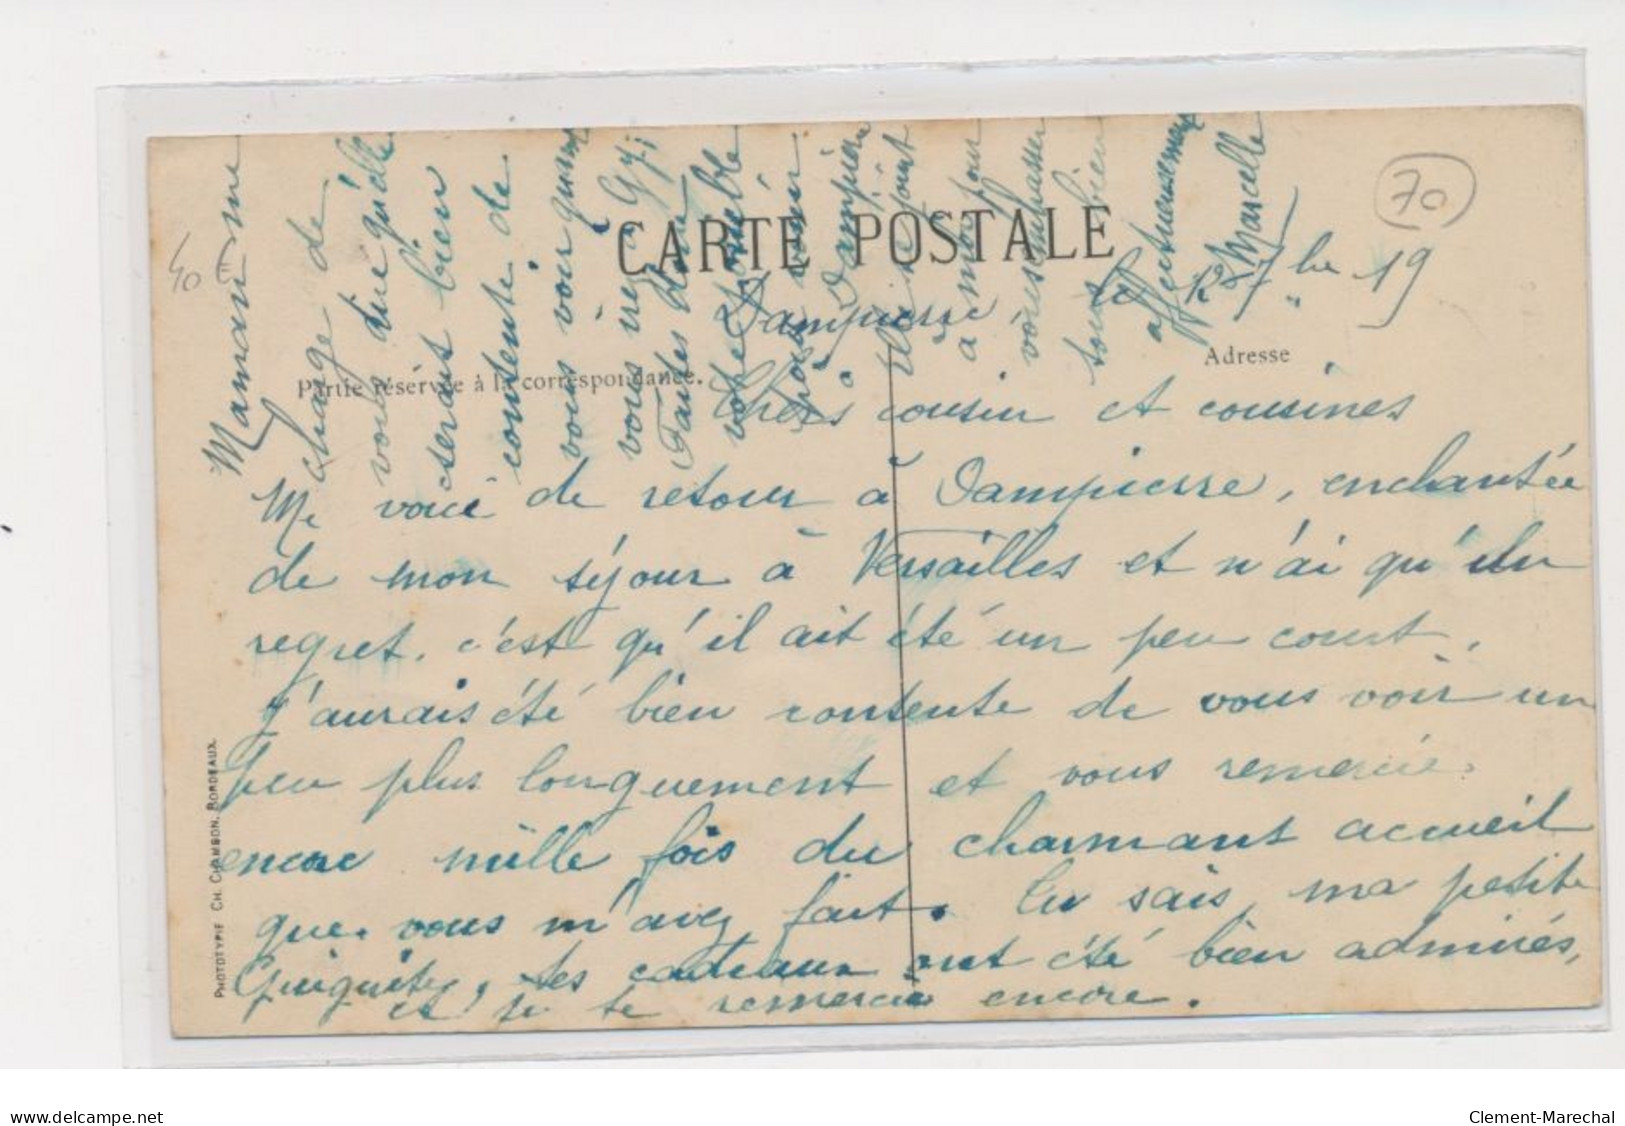 CARTE POSTALE
70
40
Dampierre le 12 7bre 19
Partie réservée à la correspondance.
Adresse
Chers cousin et cousines
Me voici de retour à Dampierre, enchantée
de mon séjour à Versailles et n'ai qu'un
regret, c'est qu'il ait été un peu court.
J'aurais été bien contente de vous voir un
peu plus longuement et vous remercie
encore mille fois du charmant accueil
que vous m'avez fait. Tu sais, ma petite
Guiguite, tes cadeaux ont été bien admirés,
et je te remercie encore.
Maman me
charge de
vous dire qu'elle
serait bien
contente de
vous voir quand
vous irez à Gy;
Faites donc
votre possible
pour venir
à Dampierre
Elle se joint
à moi pour
vous embrasser
tous bien
affectueusement
Marcelle
PHOTOTYPIE CH. CHAMBON, BORDEAUX.
www.delcampe.net
Clement-Marechal